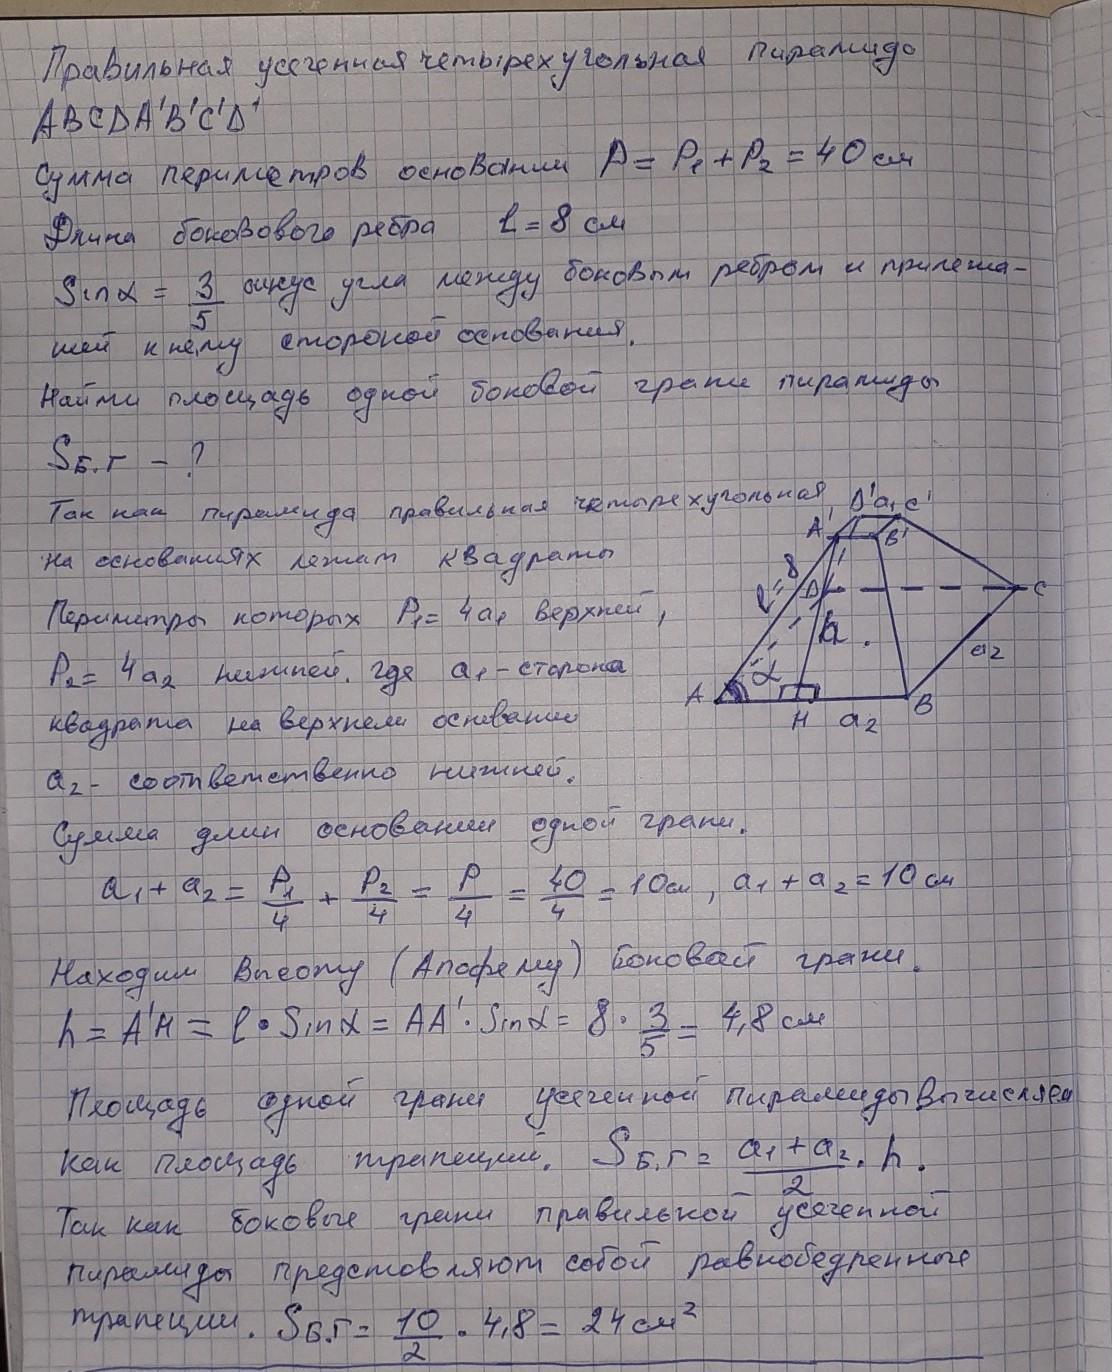 Правильная усеченная четырехугольная пирамида
ABCDA'B'C'D'
Сумма периметров основании P = P₁ + P₂ = 40 см
Длина боковового ребра l = 8 см
Sin α = 3/5 синус угла между боковым ребром и прилежа-
щей к нему стороной основания.
Найти площадь одной боковой грани пирамиды
Sб.г - ?
Так как пирамида правильная четырехугольная,
на основаниях лежат квадраты
Периметры которых P₁ = 4a₁ верхней,
P₂ = 4a₂ нижней. где a₁ - сторона
квадрата на верхнем основании
a₂ - соответственно нижней.
A' D' a₁ C'
B'
l = 8
D C
h
α a₂
A H a₂ B
Сумма длин основании одной грани.
a₁ + a₂ = P₁/4 + P₂/4 = P/4 = 40/4 = 10 см, a₁ + a₂ = 10 см
Находим Высоту (Апофему) боковой грани.
h = A'H = l • Sin α = AA' · Sin α = 8 · 3/5 = 4,8 см
Площадь одной грани усеченной пирамиды Вычисляем
как площадь трапеции. Sб.г = (a₁ + a₂)/2 · h.
Так как боковые грани правильной усеченной
пирамиды представляют собой равнобедренные
трапеции. Sб.г = 10/2 · 4,8 = 24 см²